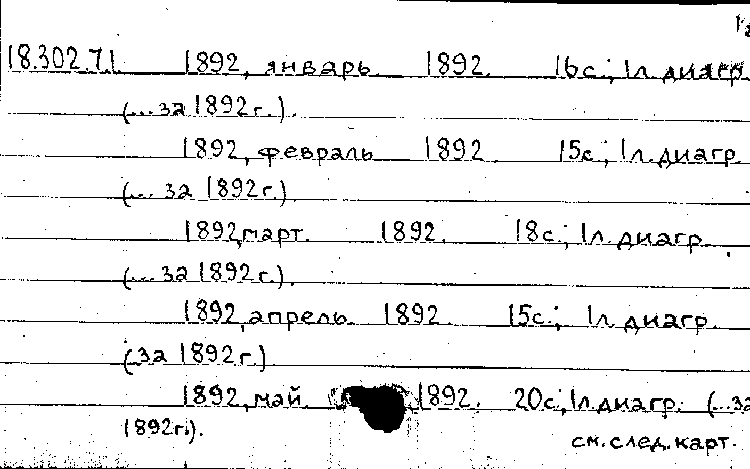 18.302.7.1. 1892, январь 1892. 16с.; 1л. диагр.
(... за 1892г.).
1892, февраль 1892. 15с.; 1л. диагр.
(... за 1892г.).
1892, март. 1892. 18с.; 1л. диагр.
(... за 1892г.).
1892, апрель 1892. 15с.; 1л. диагр.
(за 1892г.)
1892, май. 1892. 20с.; 1л. диагр. (... за
1892г.).
см. след. карт.